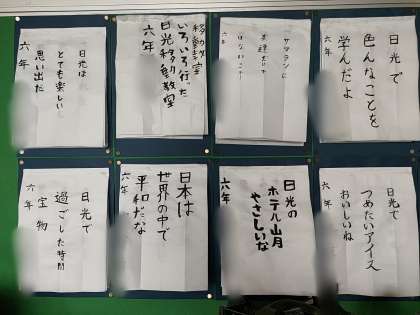 日光で
色んなことを
学んだよ
六年
サマランに
六年
移動教室
いろいろ行った
日光移動教室
六年
日光は
とても楽しい
思い出だ
六年
日光で
つめたいアイス
おいしいね
六年
日光の
ホテル山月
やさしいな
六年
日本は
世界の中で
平和だな
六年
日光で
過ごした時間
宝物
六年